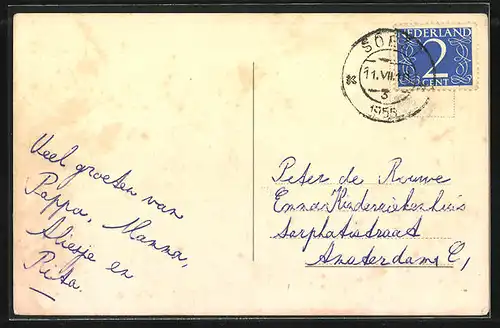 NEDERLAND
2
CENT
11.VII.
3
1955
Veel groeten van
Pappa, Mamma,
en
Peter de Rouwe
Emma Kinderziekenhuis
Sarphatistraat
Amsterdam C,